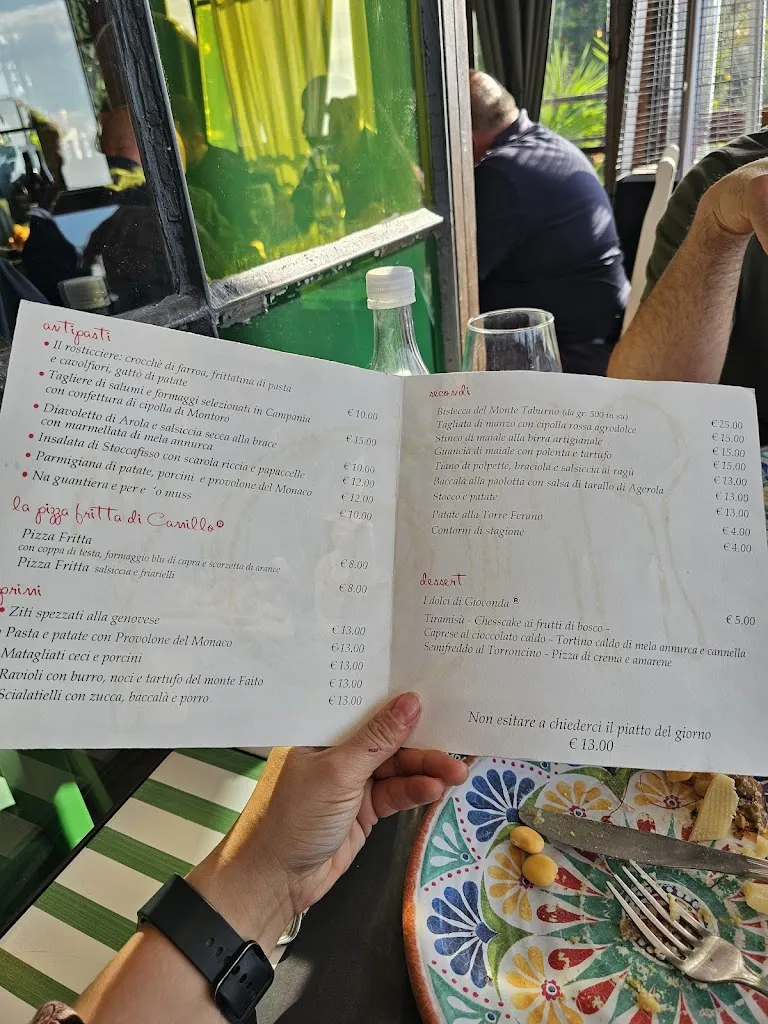 antipasti
• Il rosticciere: crocchè di farroa, frittatina di pasta
e cavolfiori, gattò di patate € 10.00
• Tagliere di salumi e formaggi selezionati in Campania
con confettura di cipolla di Montoro € 15.00
• Diavoletto di Arola e salsiccia secca alla brace
con marmellata di mela annurca € 10.00
• Insalata di Stoccafisso con scarola riccia e papaccelle € 12.00
• Parmigiana di patate, porcini e provolone del Monaco € 12.00
• Na guantiera e per e 'o muss € 10.00
la pizza fritta di Carrillo®
Pizza Fritta
con coppa di testa, formaggio blu di capra e scorzetta di arance € 8.00
Pizza Fritta salsiccia e friarielli € 8.00
primi
• Ziti spezzati alla genovese € 13.00
• Pasta e patate con Provolone del Monaco € 13.00
Matagliati ceci e porcini € 13.00
Ravioli con burro, noci e tartufo del monte Faito € 13.00
Scialatielli con zucca, baccalà e porro € 13.00
secondi
Bistecca del Monte Taburno (da gr. 500 in su) € 25.00
Tagliata di manzo con cipolla rossa agrodolce € 15.00
Stinco di maiale alla birra artigianale € 15.00
Guancia di maiale con polenta e tartufo € 15.00
Tiano di polpette, braciola e salsiccia al ragù € 13.00
Baccalà alla paolotta con salsa di tarallo di Agerola € 13.00
Stocco e patate € 13.00
Patate alla Torre Ferano € 4.00
Contorni di stagione € 4.00
dessert
I dolci di Gioconda ® € 5.00
Tiramisù - Chesscake ai frutti di bosco -
Caprese al cioccolato caldo - Tortino caldo di mela annurca e cannella
Semifreddo al Torroncino - Pizza di crema e amarene
Non esitare a chiederci il piatto del giorno
€ 13.00